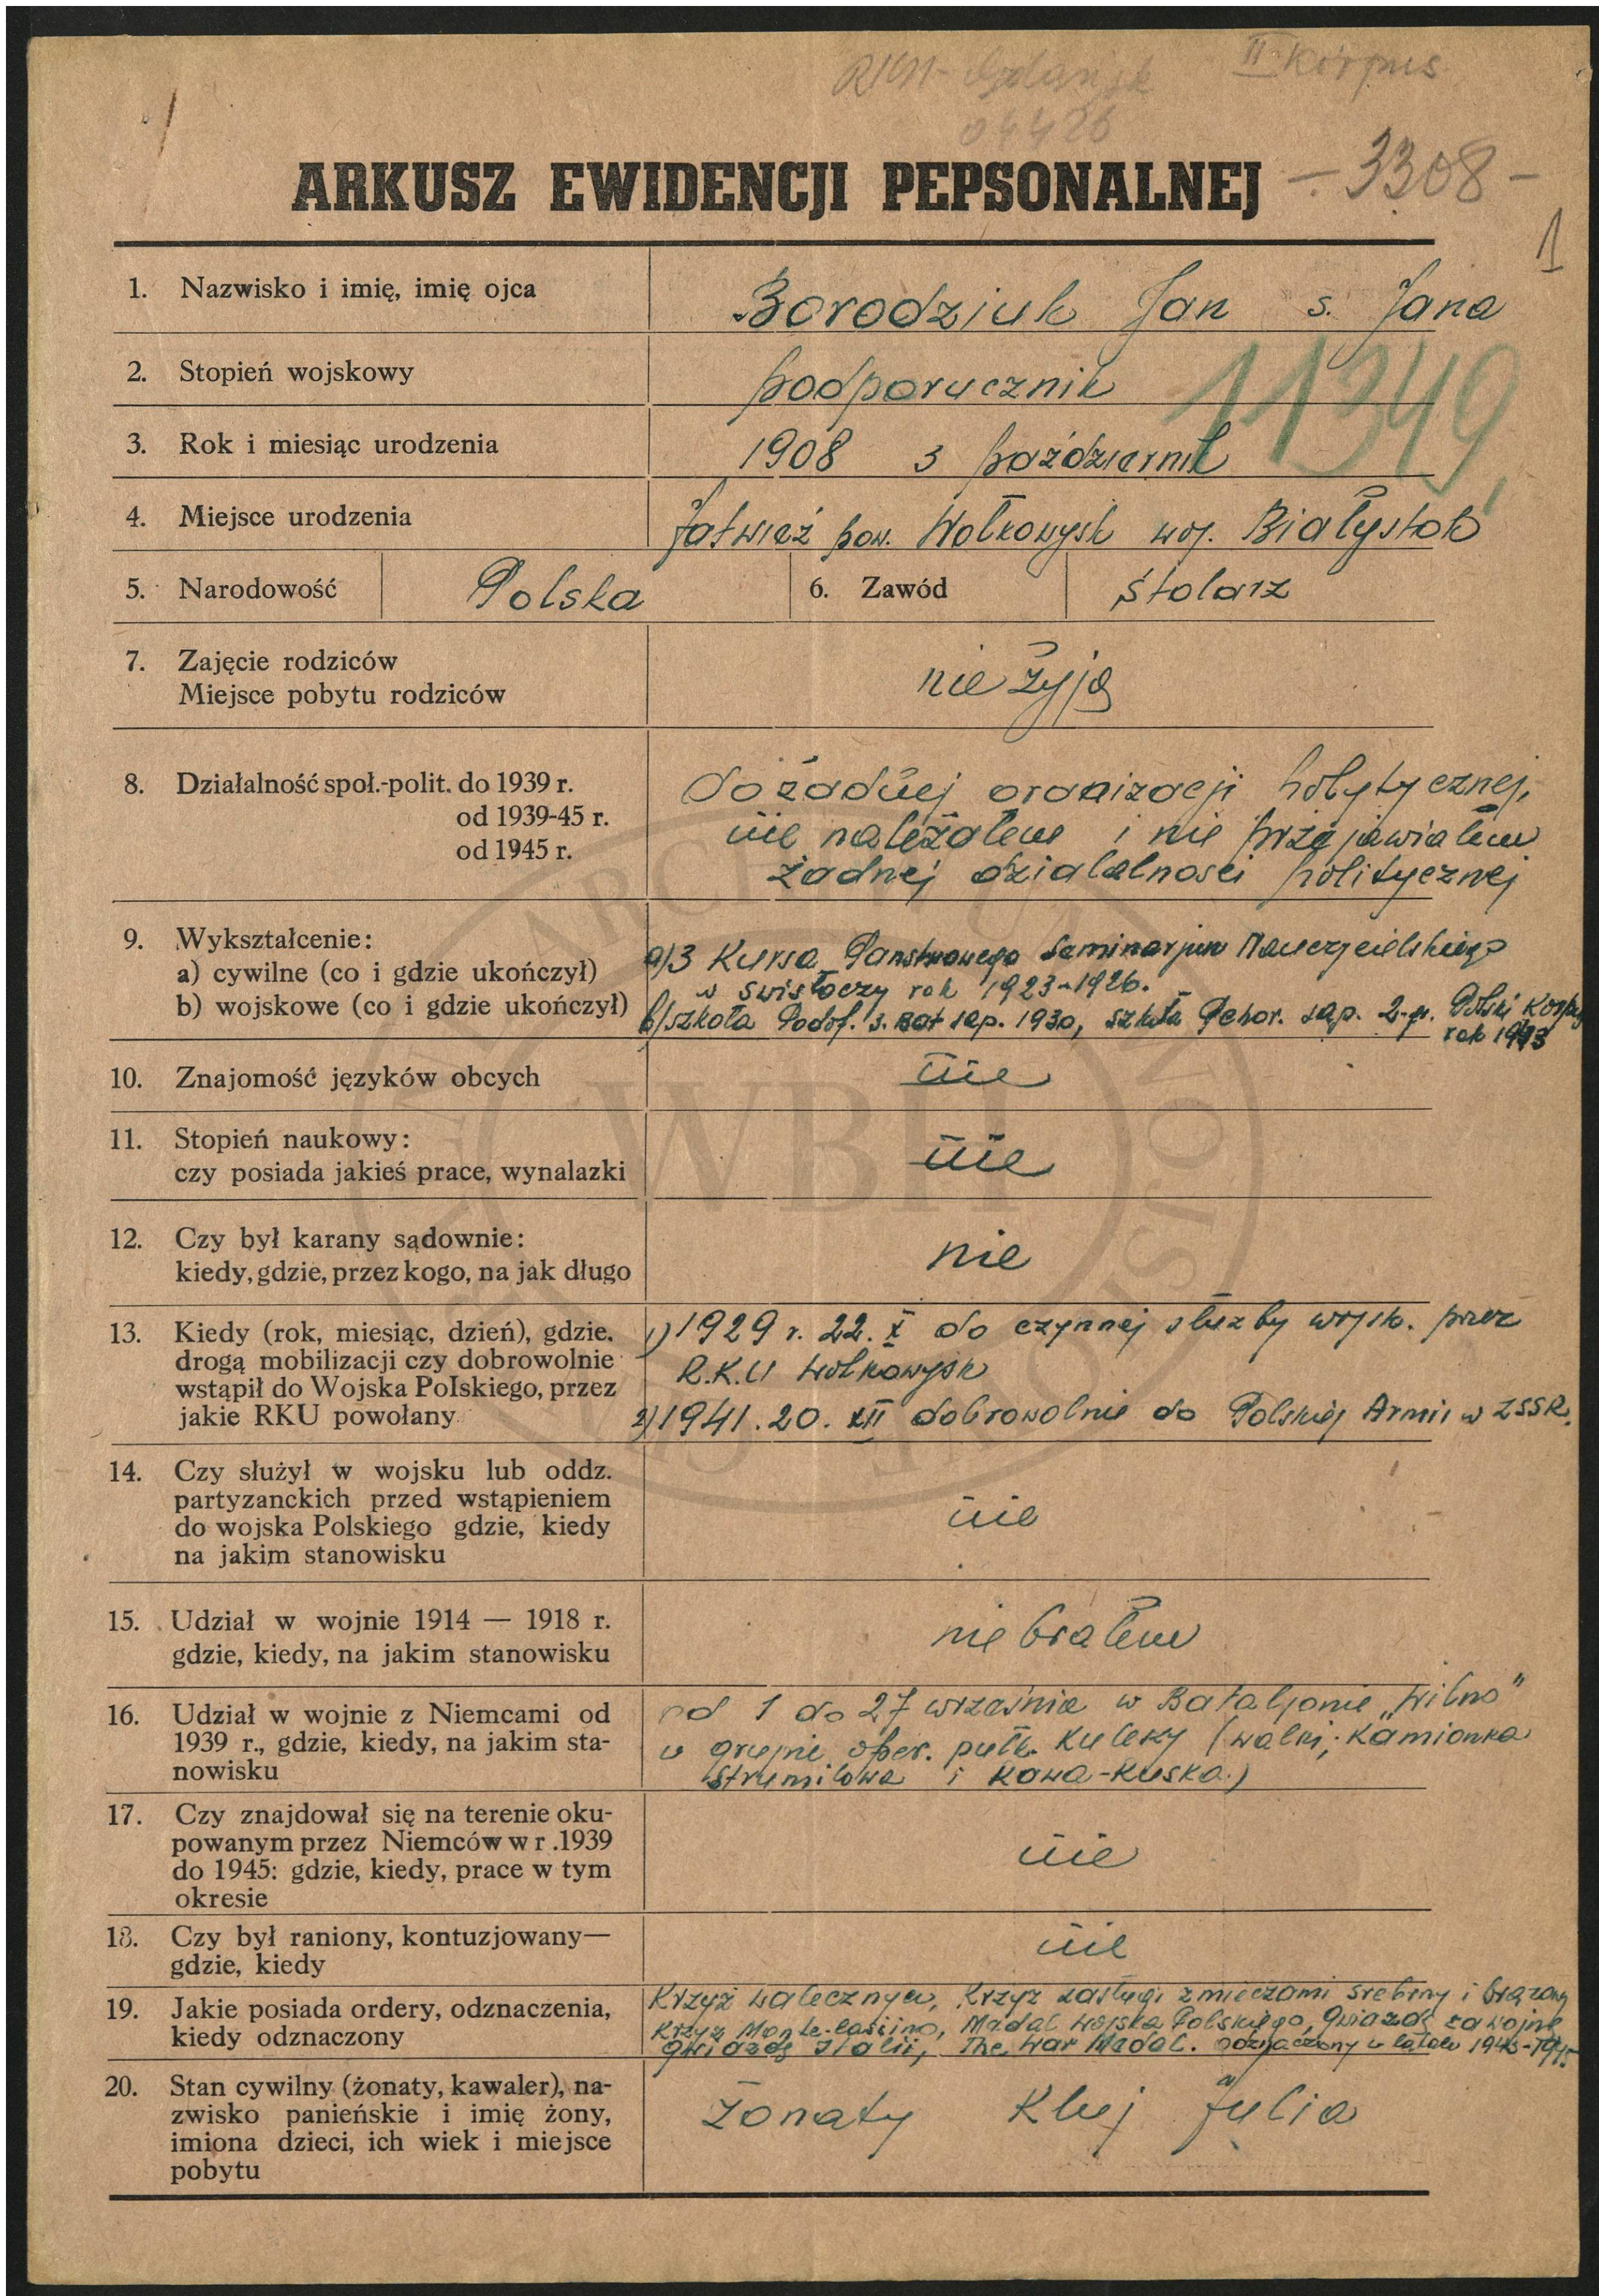 II Korpus
04426
ARKUSZ EWIDENCJI PEPSONALNEJ – 3308 –
1
1. Nazwisko i imię, imię ojca Borodziuk Jan s. Jana
2. Stopień wojskowy podporucznik
11349
3. Rok i miesiąc urodzenia 1908 3 październik
4. Miejsce urodzenia Jatwieź pow. Wołkowysk woj. Białystok
5. Narodowość Polska 6. Zawód stolarz
7. Zajęcie rodziców
Miejsce pobytu rodziców nie żyją
8. Działalność społ.-polit. do 1939 r. do żadnej oranizacji polytycznej,
od 1939-45 r. nie należałem i nie przejawiałem
od 1945 r. żadnej dzialalnosci politycznej
9. Wykształcenie:
a) cywilne (co i gdzie ukończył) a) 3 Kursa Panstwowego Seminarjum Nauczycielskiego
w Swisłoczy rok 1923-1926.
b) wojskowe (co i gdzie ukończył) b) szkoła Podof. 3. Bat sap. 1930, szkoła Pchor. sap. 2-g. Polski Korpus
rok 1943
10. Znajomość języków obcych nie
11. Stopień naukowy:
czy posiada jakieś prace, wynalazki nie
12. Czy był karany sądownie:
kiedy, gdzie, przez kogo, na jak długo nie
13. Kiedy (rok, miesiąc, dzień), gdzie. 1) 1929 r. 22. X do czynnej służby wojsk. przez
drogą mobilizacji czy dobrowolnie R.K.U Wołkowysk
wstąpił do Wojska Polskiego, przez
jakie RKU powołany 2) 1941. 20. XII dobrowolnie do Polskiej Armii w ZSSR.
14. Czy służył w wojsku lub oddz.
partyzanckich przed wstąpieniem
do wojska Polskiego gdzie, kiedy nie
na jakim stanowisku
15. Udział w wojnie 1914 — 1918 r. nie brałem
gdzie, kiedy, na jakim stanowisku
16. Udział w wojnie z Niemcami od od 1 do 27 września w Bataljonie „Wilno"
1939 r., gdzie, kiedy, na jakim sta- w grupie oper. pułk. Kuleszy (walki; Kamionka
nowisku Strumiłowa i Rawa-Ruska)
17. Czy znajdował się na terenie oku-
powanym przez Niemców w r .1939
do 1945: gdzie, kiedy, prace w tym nie
okresie
18. Czy był raniony, kontuzjowany— nie
gdzie, kiedy
19. Jakie posiada ordery, odznaczenia, Krzyż Walecznych, Krzyż zasługi z mieczami srebrny i brązowy
kiedy odznaczony Krzyż Monte-Cassino, Medal Wojska Polskiego, Gwiazdę za wojnę
Gwiazdę Italii, The War Medal. odznaczony w latach 1943-1945
20. Stan cywilny (żonaty, kawaler), na- Żonaty Kluj Julia
zwisko panieńskie i imię żony,
imiona dzieci, ich wiek i miejsce
pobytu
WBH